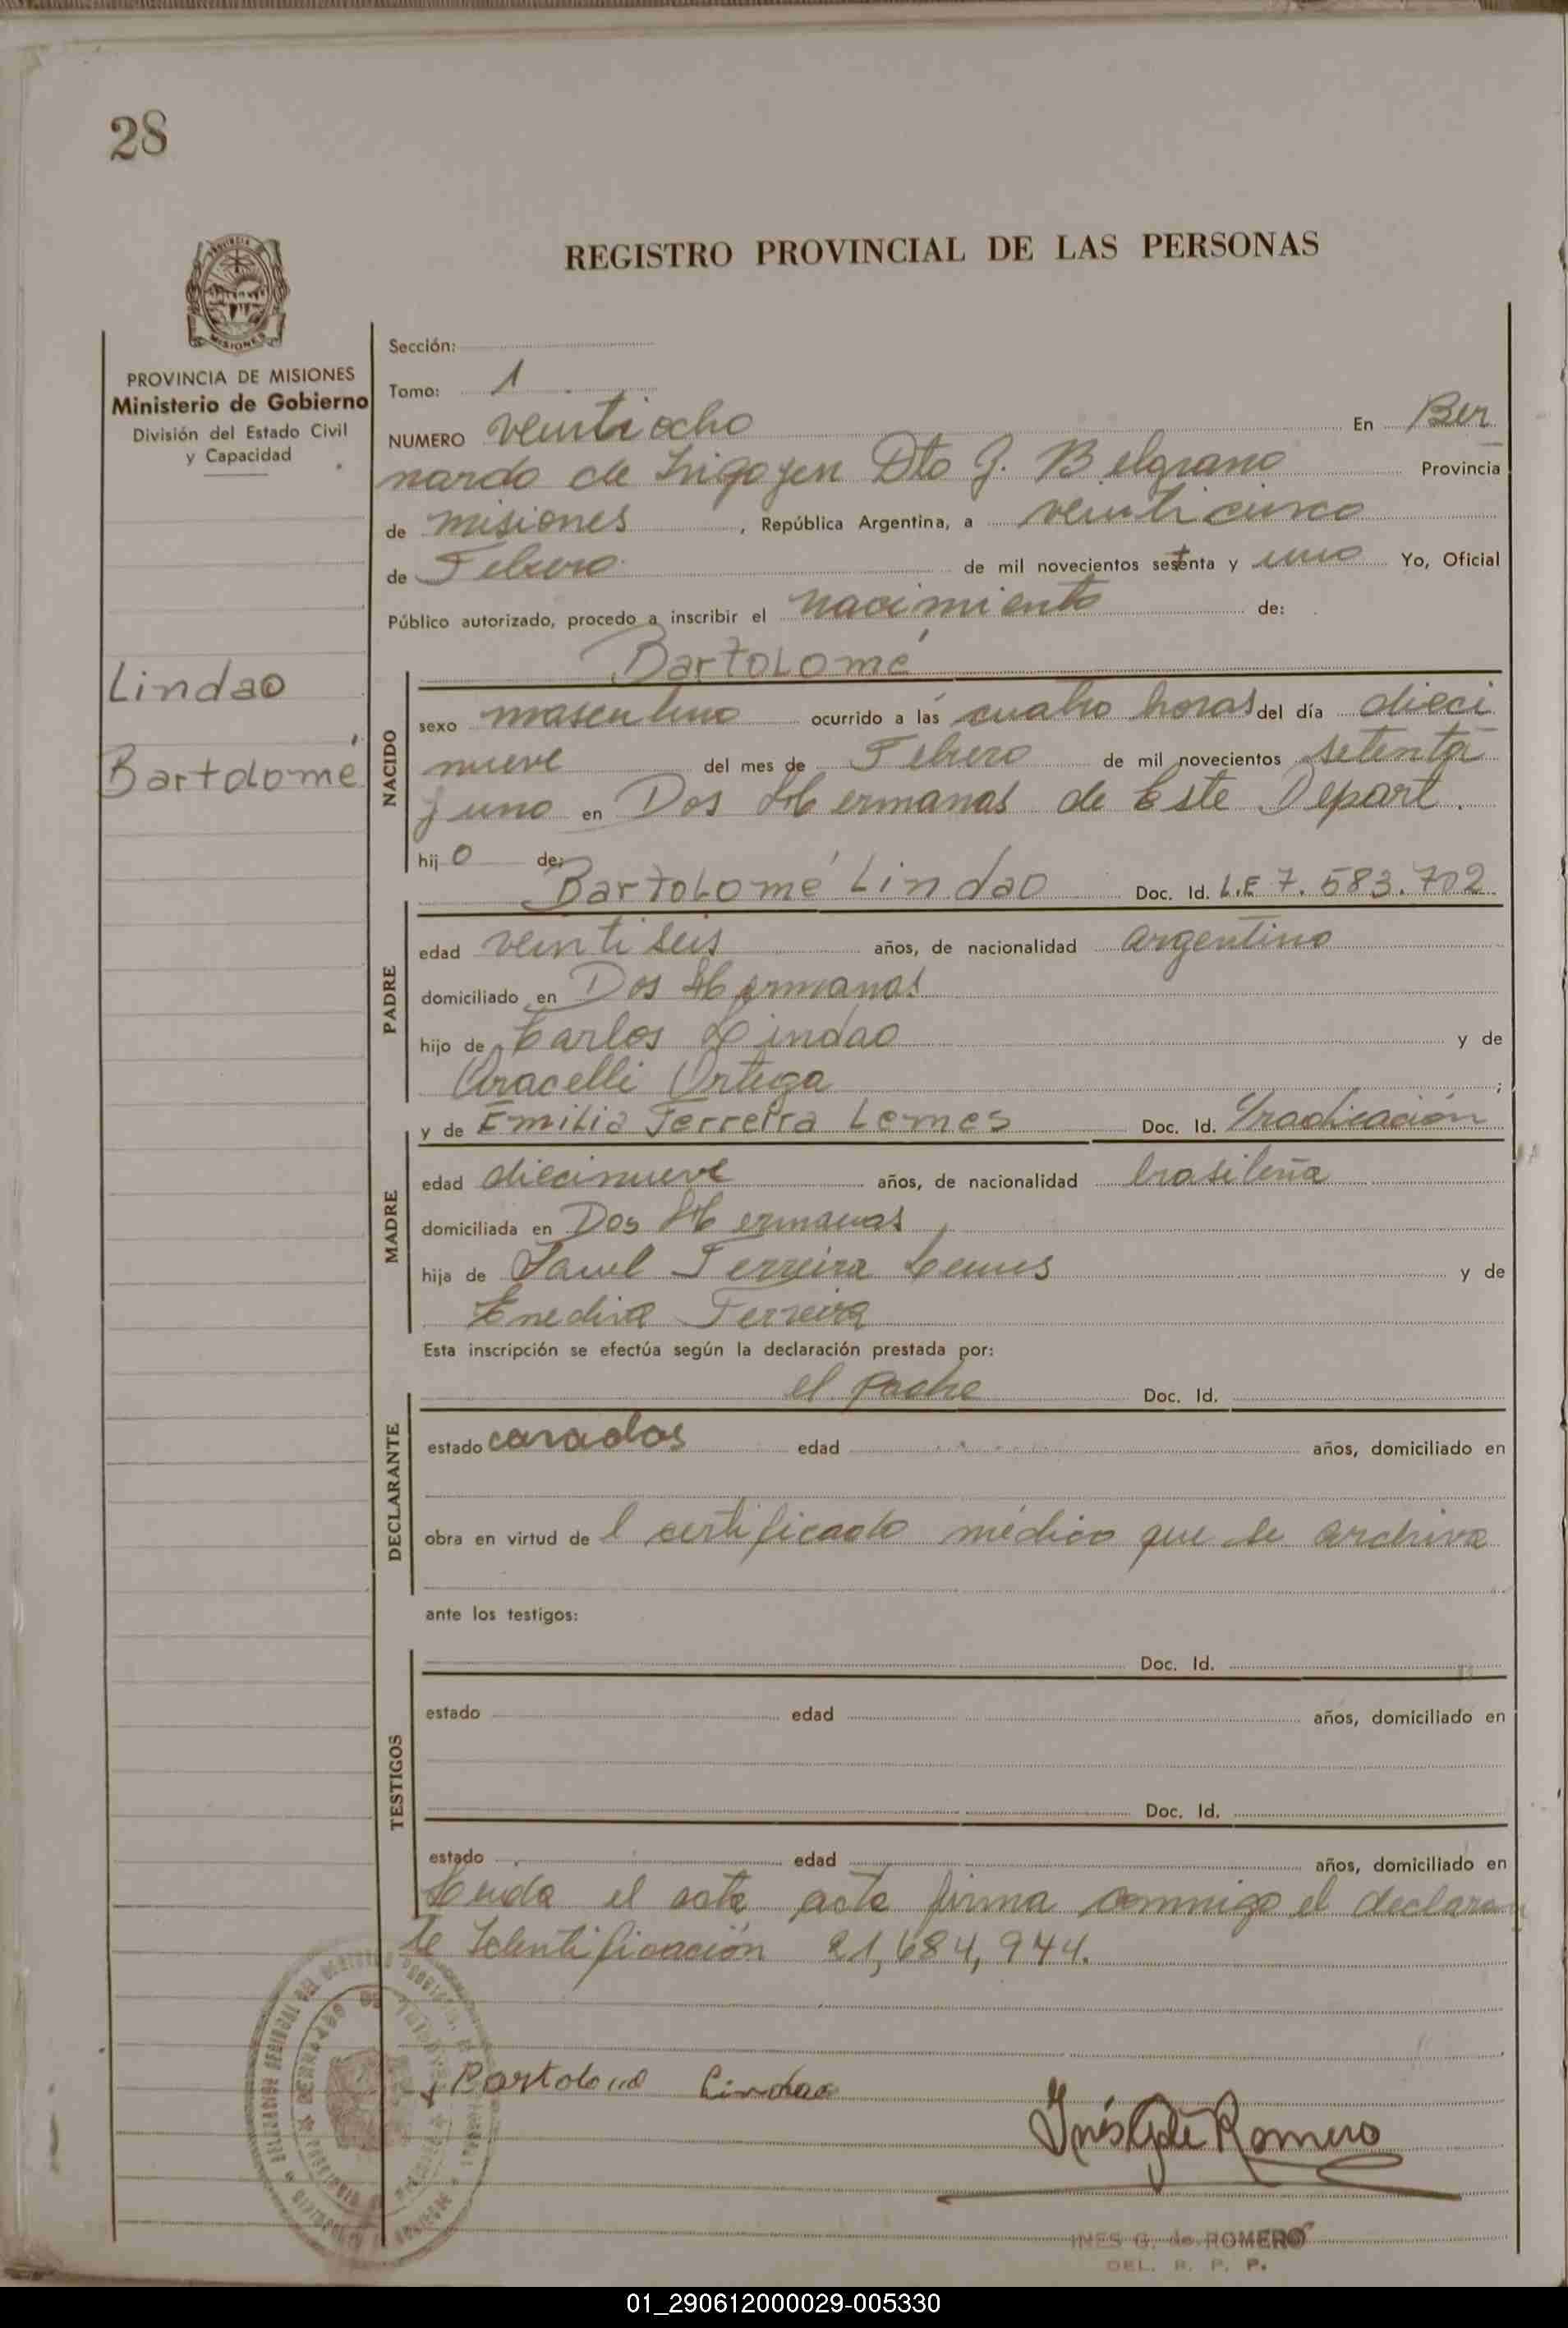 28
REGISTRO PROVINCIAL DE LAS PERSONAS
MISIONES
PROVINCIA DE MISIONES
Ministerio de Gobierno
División del Estado Civil
y Capacidad
Lindao
Bartolomé
Sección:
Tomo: 1
NUMERO veintiocho En Ber
nardo de Irigoyen Dto G. Belgrano Provincia
de misiones, República Argentina, a veinticinco
de Febrero de mil novecientos setenta y uno Yo, Oficial
Público autorizado, procedo a inscribir el nacimiento de:
Bartolomé
NACIDO
sexo masculino ocurrido a las cuatro horas del día dieci
nueve del mes de Febrero de mil novecientos setenta
y uno en Dos Hermanas de Este Depart.
hijo de:
Bartolomé Lindao Doc. Id. L.E 7.583.702
PADRE
edad veintiseis años, de nacionalidad argentino
domiciliado en Dos Hermanas
hijo de Carlos Lindao y de
Aracelli Ortega ;
y de Emilia Ferreira Lemes Doc. Id. Yradicación
MADRE
edad diecinueve años, de nacionalidad brasileña
domiciliada en Dos Hermanas
hija de Ferreira Lemes y de
Enedina Ferreira
Esta inscripción se efectúa según la declaración prestada por:
el padre Doc. Id.
DECLARANTE
estado casados edad años, domiciliado en
obra en virtud de l certificado médico que se archiva
ante los testigos:
Doc. Id.
TESTIGOS
estado edad años, domiciliado en
Doc. Id.
estado edad años, domiciliado en
Leida el acta firma conmigo el declaran
te Identificación 21,684,944.
Bartolome Lindao
Inés G de Romero
INES G. de ROMERO
DEL. R. P. P.
01_290612000029-005330